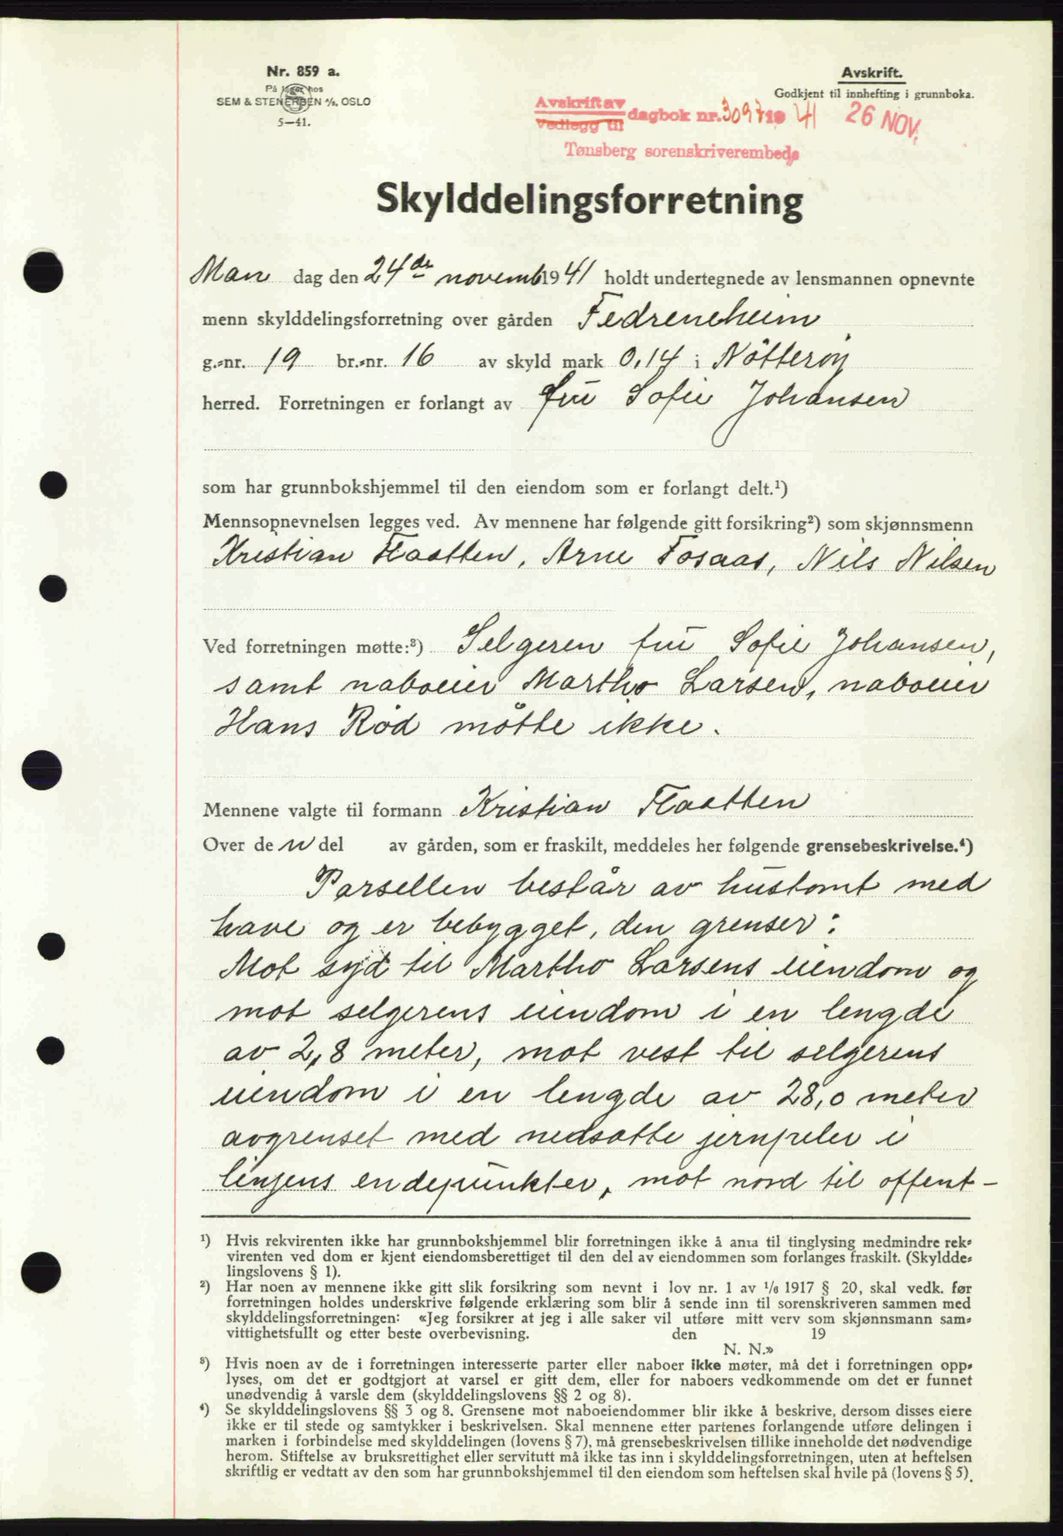 Nr. 859 a.
På lager hos
SEM & STENERSEN A/S, OSLO
5—41.
Avskrift.
Godkjent til innhefting i grunnboka.
Avskrift av
Vedlegg til dagbok nr. 3097 19 41 26 NOV.
Tønsberg sorenskriverembede
Skylddelingsforretning
Man dag den 24de novemb 1941 holdt undertegnede av lensmannen opnevnte
menn skylddelingsforretning over gården Fedreneheim
g.-nr. 19 br.-nr. 16 av skyld mark 0,14 i Nøtterøy
herred. Forretningen er forlangt av fru Sofie Johansen
som har grunnbokshjemmel til den eiendom som er forlangt delt.¹)
Mennsopnevnelsen legges ved. Av mennene har følgende gitt forsikring²) som skjønnsmenn
Kristian Flaatten, Arne Fosaas, Nils Nilsen
Ved forretningen møtte:³) Selgeren fru Sofie Johansen,
samt naboeier Martho Larsen, naboeier
Hans Rød møtte ikke.
Mennene valgte til formann Kristian Flaatten
Over de n del av gården, som er fraskilt, meddeles her følgende grensebeskrivelse.⁴)
Parsellen består av hustomt med
have og er bebygget, den grenser:
Mot syd til Martho Larsens eiendom og
mot selgerens eiendom i en lengde
av 2,8 meter, mot vest til selgerens
eiendom i en lengde av 28,0 meter
avgrenset med nedsatte jernpeler i
linjens endepunkter, mot nord til offent-
¹) Hvis rekvirenten ikke har grunnbokshjemmel blir forretningen ikke å anta til tinglysing medmindre rek-
virenten ved dom er kjent eiendomsberettiget til den del av eiendommen som forlanges fraskilt. (Skyldde-
lingslovens § 1).
²) Har noen av mennene ikke gitt slik forsikring som nevnt i lov nr. 1 av 1/6 1917 § 20, skal vedk. før
forretningen holdes underskrive følgende erklæring som blir å sende inn til sorenskriveren sammen med
skylddelingsforretningen: «Jeg forsikrer at jeg i alle saker vil utføre mitt verv som skjønnsmann sam-
vittighetsfullt og etter beste overbevisning. den 19
N. N.»
³) Hvis noen av de i forretningen interesserte parter eller naboer ikke møter, må det i forretningen opp-
lyses, om det er godtgjort at varsel er gitt dem, eller for naboers vedkommende om det er funnet
unødvendig å varsle dem (skylddelingslovens §§ 2 og 8).
⁴) Se skylddelingslovens §§ 3 og 8. Grensene mot naboeiendommer blir ikke å beskrive, dersom disses eiere
ikke er til stede og samtykker i beskrivelsen. Skal mennene etter partenes forlangende utføre delingen i
marken i forbindelse med skylddelingen (lovens § 7), må grensebeskrivelsen tillike inneholde det nødvendige
herom. Stiftelse av bruksrettighet eller servitutt må ikke tas inn i skylddelingsforretningen, uten at heftelsen
skriftlig er vedtatt av den som har grunnbokshjemmel til den eiendom som heftelsen skal hvile på (lovens § 5).